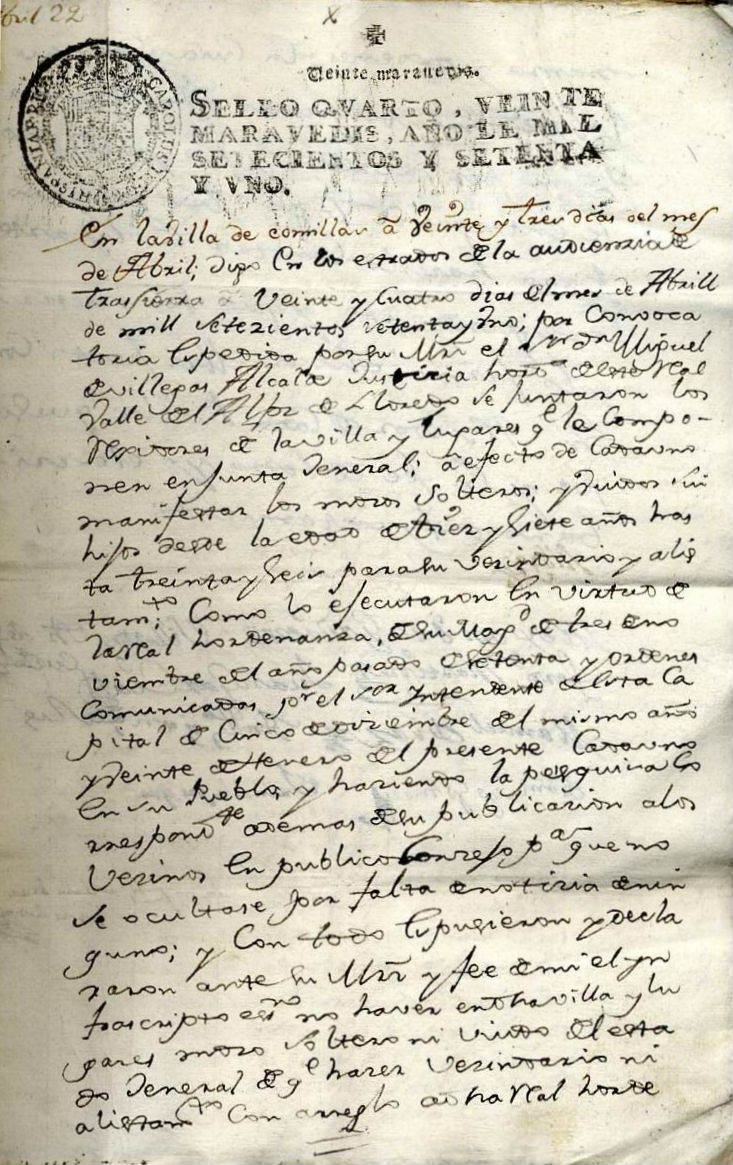 Abril 22
X
Veinte maravedis.
SELLO QVARTO, VEINTE
MARAVEDIS, AÑO DE MIL
SETECIENTOS Y SETENTA
Y VNO.
CAROLUS HISPANIAR REX
En la Villa de comillas â veinte y tres dias del mes
de Abril; digo En los estrados de la audienzia de
trassierra â Veinte y Cuatro dias del mes de Abrill
de mill setezientos setenta y Uno; por Convoca
toria Expedida por su Mrd el Sor Dn Miguel
de Villegas Alcalde Justicia hordª de este Real
Valle del Alfoz de Lloredo se Juntaron los
Rexidores de la villa y lugares qe le Compo-
nen en Junta General; a efecto de Cada uno
manifestar los mozos Solteros; y Viudos sin
hijos desde la edad de diez y siete años has
ta treinta y seis para su Vezindario y alis
tamto; Como lo ejecutaron En virtud de
la Real hordenanza, de su Magd de tres de no
viembre del año pasado de setenta y ordenes
Comunicadas por el Sor Yntendente de Esta Ca
pital de Cinco de Diziembre del mismo año
y Veinte de Henero del presente Cada uno
En su Pueblo, y haziendo la pesquisa Co
rrespondte ademas de su publicazion a los
Vezinos En publico Conzejo pª que no
se ocultase por falta de notizia de nin
guno; y Con todo Expusieron y decla
raron ante su Mrd y fee de mi el yn
frascripto essno no haver en dha villa y lu
gares mozo Soltero ni Viudo del esta
do General de qe hazer Vezindario ni
alistamto Con arreglo a dha Real horde